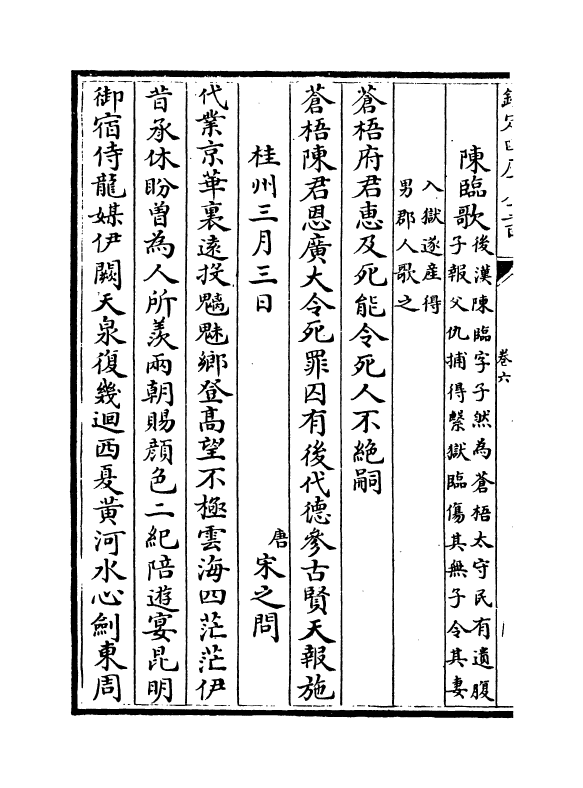 卷六
陳臨歌後漢陳臨字子然為蒼梧太守民有遺腹
子報父仇捕得繫獄臨傷其無子令其妻
入獄遂産得
男郡人歌之
蒼梧府君恵及死能令死人不絶嗣
蒼梧陳君恩廣大令死罪囚有後代德參古賢天報施
桂州三月三日 唐宋之問
代業京華裏遠投魑魅鄉登髙望不極雲海四茫茫伊
昔承休盼曽為人所羨兩朝賜顔色二紀陪遊宴昆明
御宿侍龍媒伊闕天泉復幾迴西夏黄河水心劍東周